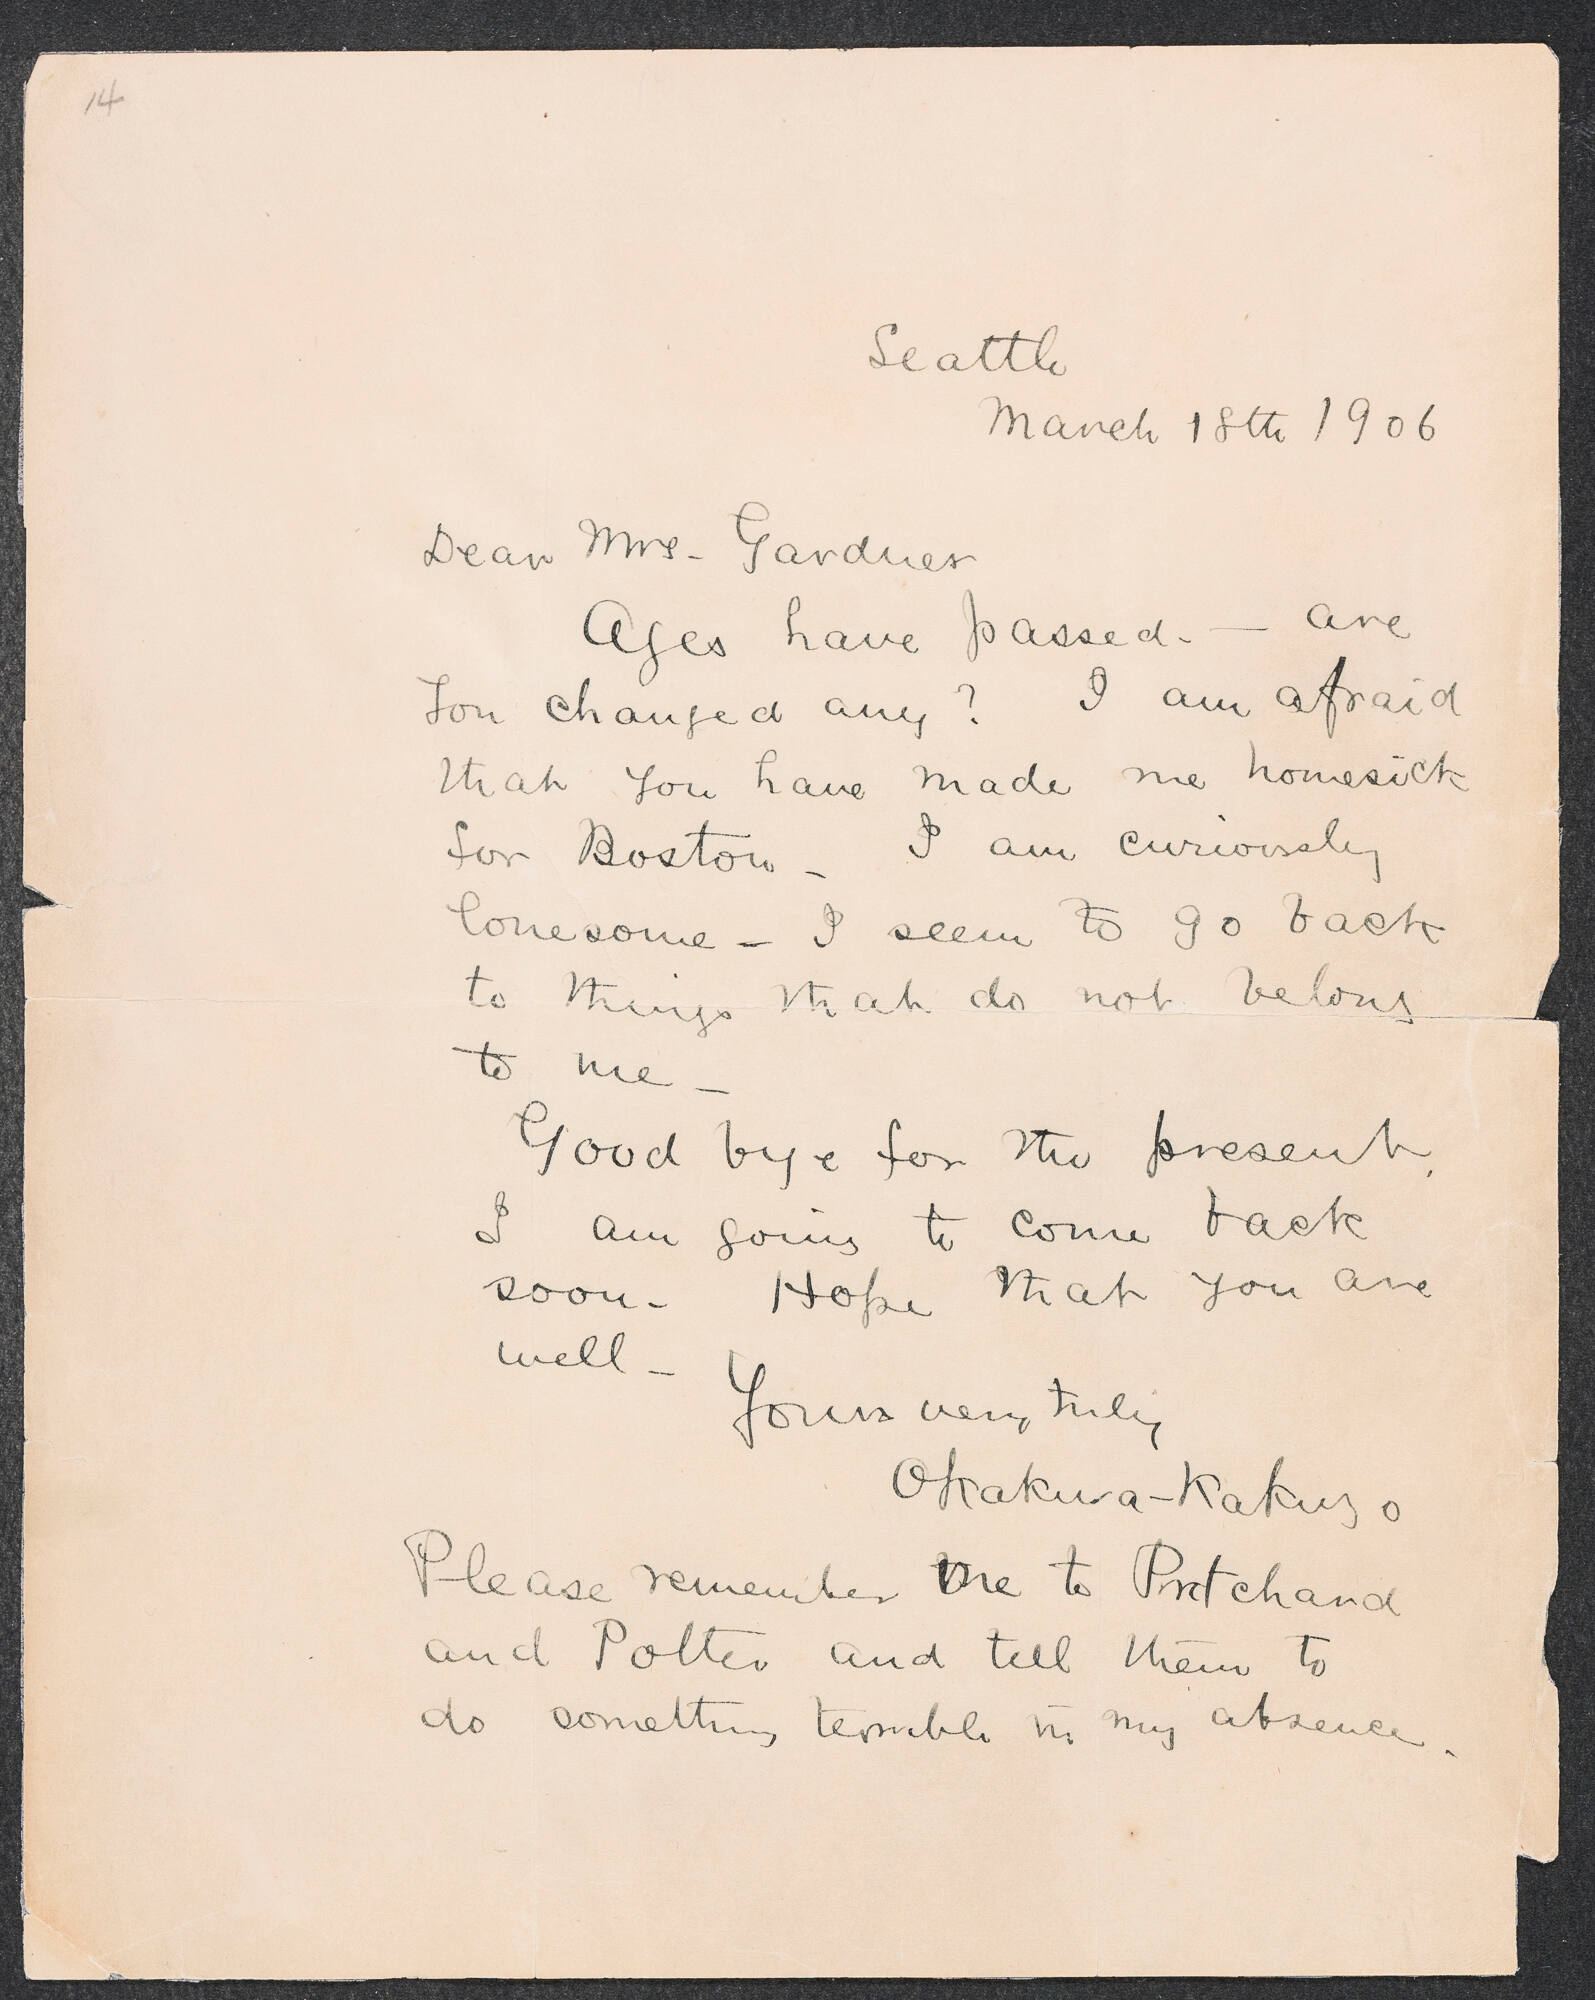 14
Seattle
March 18th 1906
Dear Mrs- Gardner
Ages have passed. — are
you changed any? I am afraid
that you have made me homesick
for Boston - I am curiously
lonesome - I seem to go back
to things that do not belong
to me -
Good bye for the present.
I am going to come back
soon - Hope that you are
well -
Yours very truly
Okakura-Kakuzo
Please remember me to Pritchard
and Potter and tell them to
do something terrible in my absence.